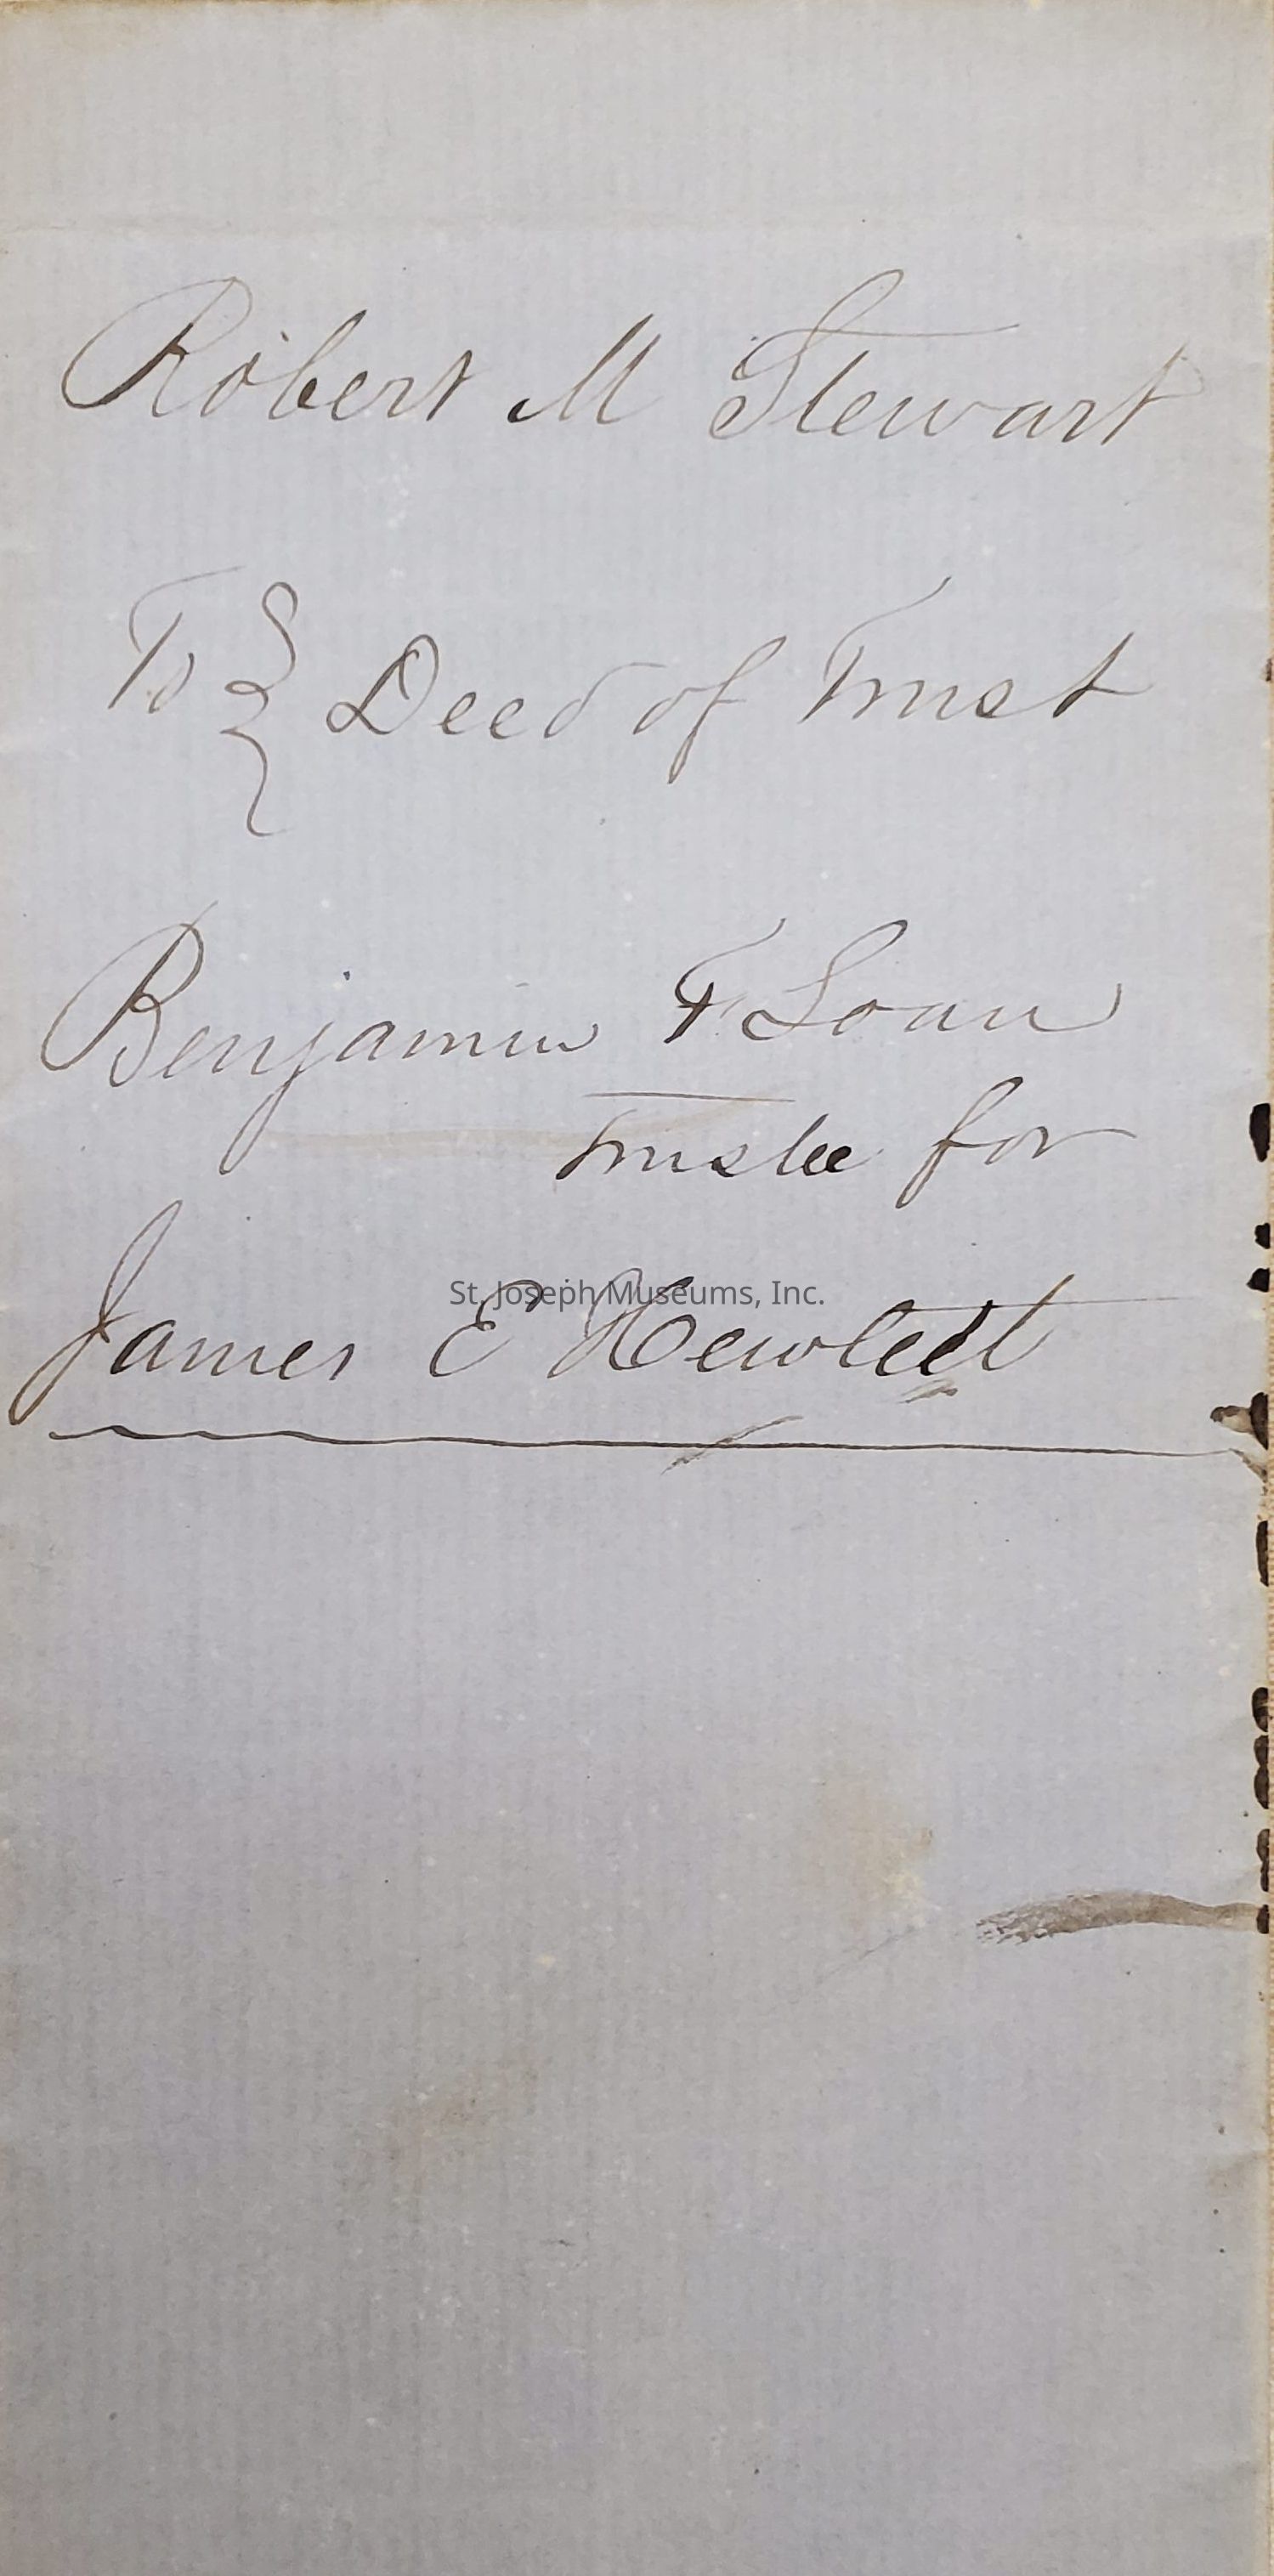 Robert M Stewart
To } Deed of Trust
Benjamin F Loan
Trustee for
St. Joseph Museums, Inc.
James E Hewlett